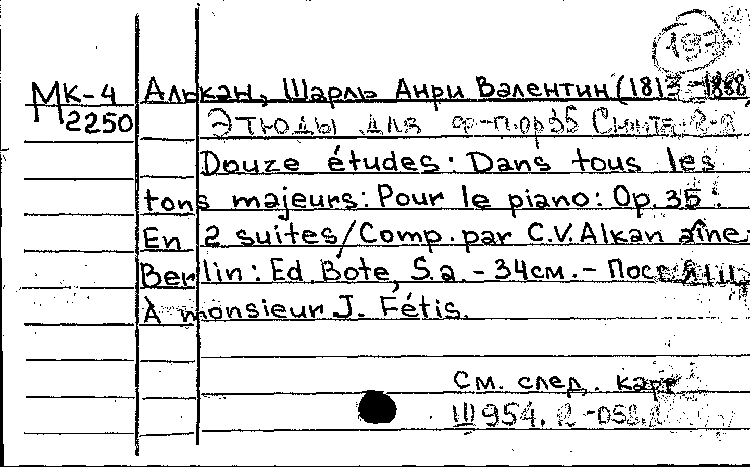 187
МК-4 Алькан, Шарль Анри Валентин (1813-1888
2250 Этюды для ф-п.ор35
Douze études: Dans tous les
tons majeurs: Pour le piano: Op. 35.
En 2 suites/Comp. par C.V. Alkan aîne
Berlin: Ed. Bote, S.a. - 34см. -
À monsieur J. Fétis.
См. след. карт
III 954.